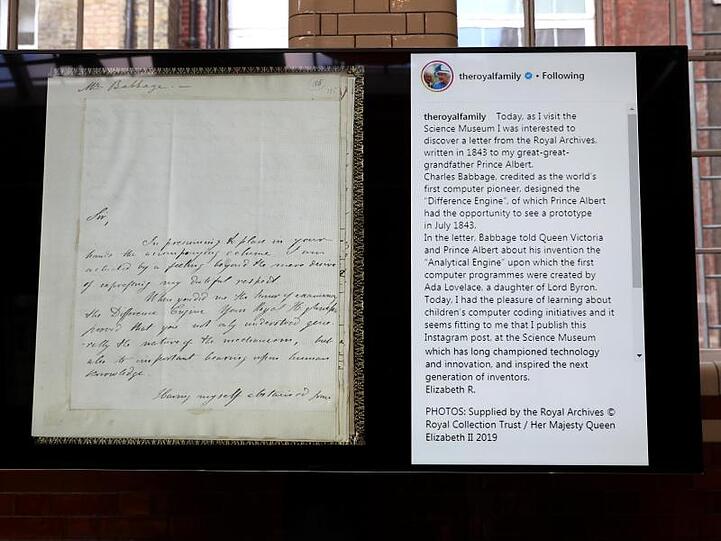 Mr. Babbage. —
Sir,
In presuming to place in your
hands the accompanying volume I am
actuated by a feeling beyond the mere desire
of expressing my dutiful respect.
When you did me the honor of examining
the Difference Engine Your Royal Highness
proved that you not only understood gene-
rally the nature of the mechanism, but
also its important bearing upon human
knowledge.
Having myself abstained from
theroyalfamily • Following
theroyalfamily Today, as I visit the
Science Museum I was interested to
discover a letter from the Royal Archives,
written in 1843 to my great-great-
grandfather Prince Albert.
Charles Babbage, credited as the world's
first computer pioneer, designed the
"Difference Engine", of which Prince Albert
had the opportunity to see a prototype
in July 1843.
In the letter, Babbage told Queen Victoria
and Prince Albert about his invention the
"Analytical Engine" upon which the first
computer programmes were created by
Ada Lovelace, a daughter of Lord Byron.
Today, I had the pleasure of learning about
children's computer coding initiatives and it
seems fitting to me that I publish this
Instagram post, at the Science Museum
which has long championed technology
and innovation, and inspired the next
generation of inventors.
Elizabeth R.
PHOTOS: Supplied by the Royal Archives ©
Royal Collection Trust / Her Majesty Queen
Elizabeth II 2019